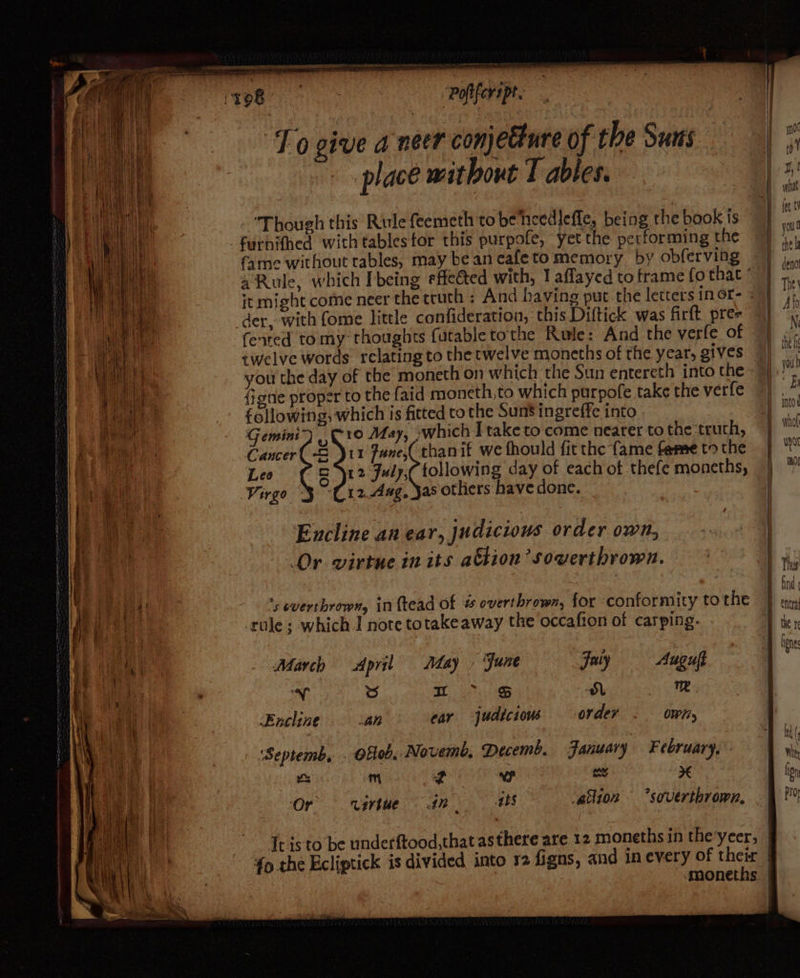 198 Poſtſcript.
To give a neer conjecture of the Suns
place without Tables.
Though this Rule ſeemeth to be needleſſe, being the book is
furniſhed with tables for this purpoſe, yet the performing the
ſame without tables, may be an eaſe to memory by obſerving
a Rule, which I being effected with, I aſſayed to frame ſo that
it might come neer the truth : And having put the letters in or-
der, with ſome little conſideration, this Diſtick was firſt pre-
ſented to my thoughts ſutable to the Rule: And the verſe of
twelve words relating to the twelve moneths of the year, gives
you the day of the moneth on which the Sun entereth into the
ſigne proper to the ſaid moneth, to which purpoſe take the verſe
following, which is fitted to the Suns ingreſſe into
Gemini 10 May, which I take to come nearer to the truth,
Cancer ♋ 11 June, than if we ſhould fit the ſame ſame to the
Leo 12 July, following day of each of theſe moneths,
Virgo 12 Aug. as others have done.
Encline an ear, judicious order own,
Or virtue in its action 'soverthrown.
's overthrown, in ſtead of is overthrown, for conformity to the
rule ; which I note to take away the occaſion of carping.
March April May June July Auguſt
♈ ♉ ♊ ♋ ♌ ♍
Encline an ear judicious order own,
Septemb. Octob. Novemb. Decemb. January February.
♎ ♏ ♐ ♑ ♒ ♓
Or virtue in its action 'soverthrown.
It is to be underſtood, that as there are 12 moneths in the yeer,
ſo the Ecliptick is divided into 12 ſigns, and in every of their
moneths